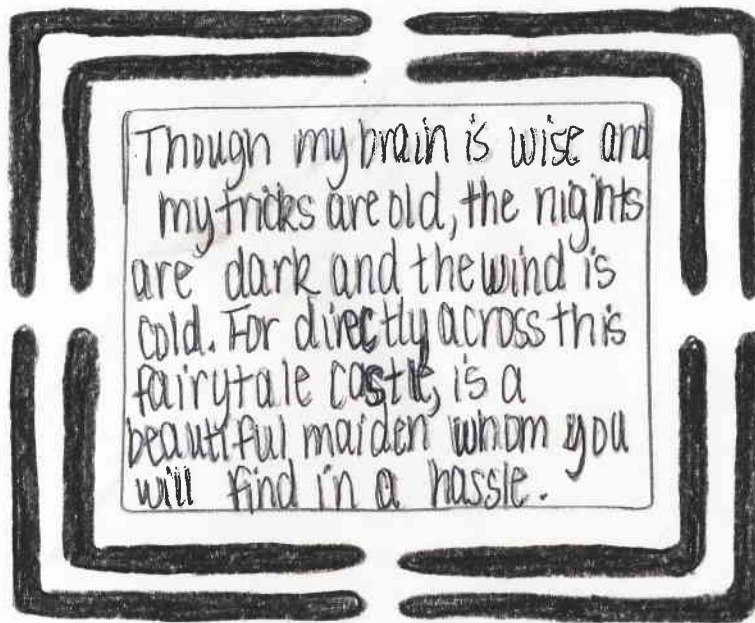 Though my brain is wise and
my tricks are old, the nights
are dark and the wind is
cold. For directly across this
fairytale castle, is a
beautiful maiden whom you
will find in a hassle.